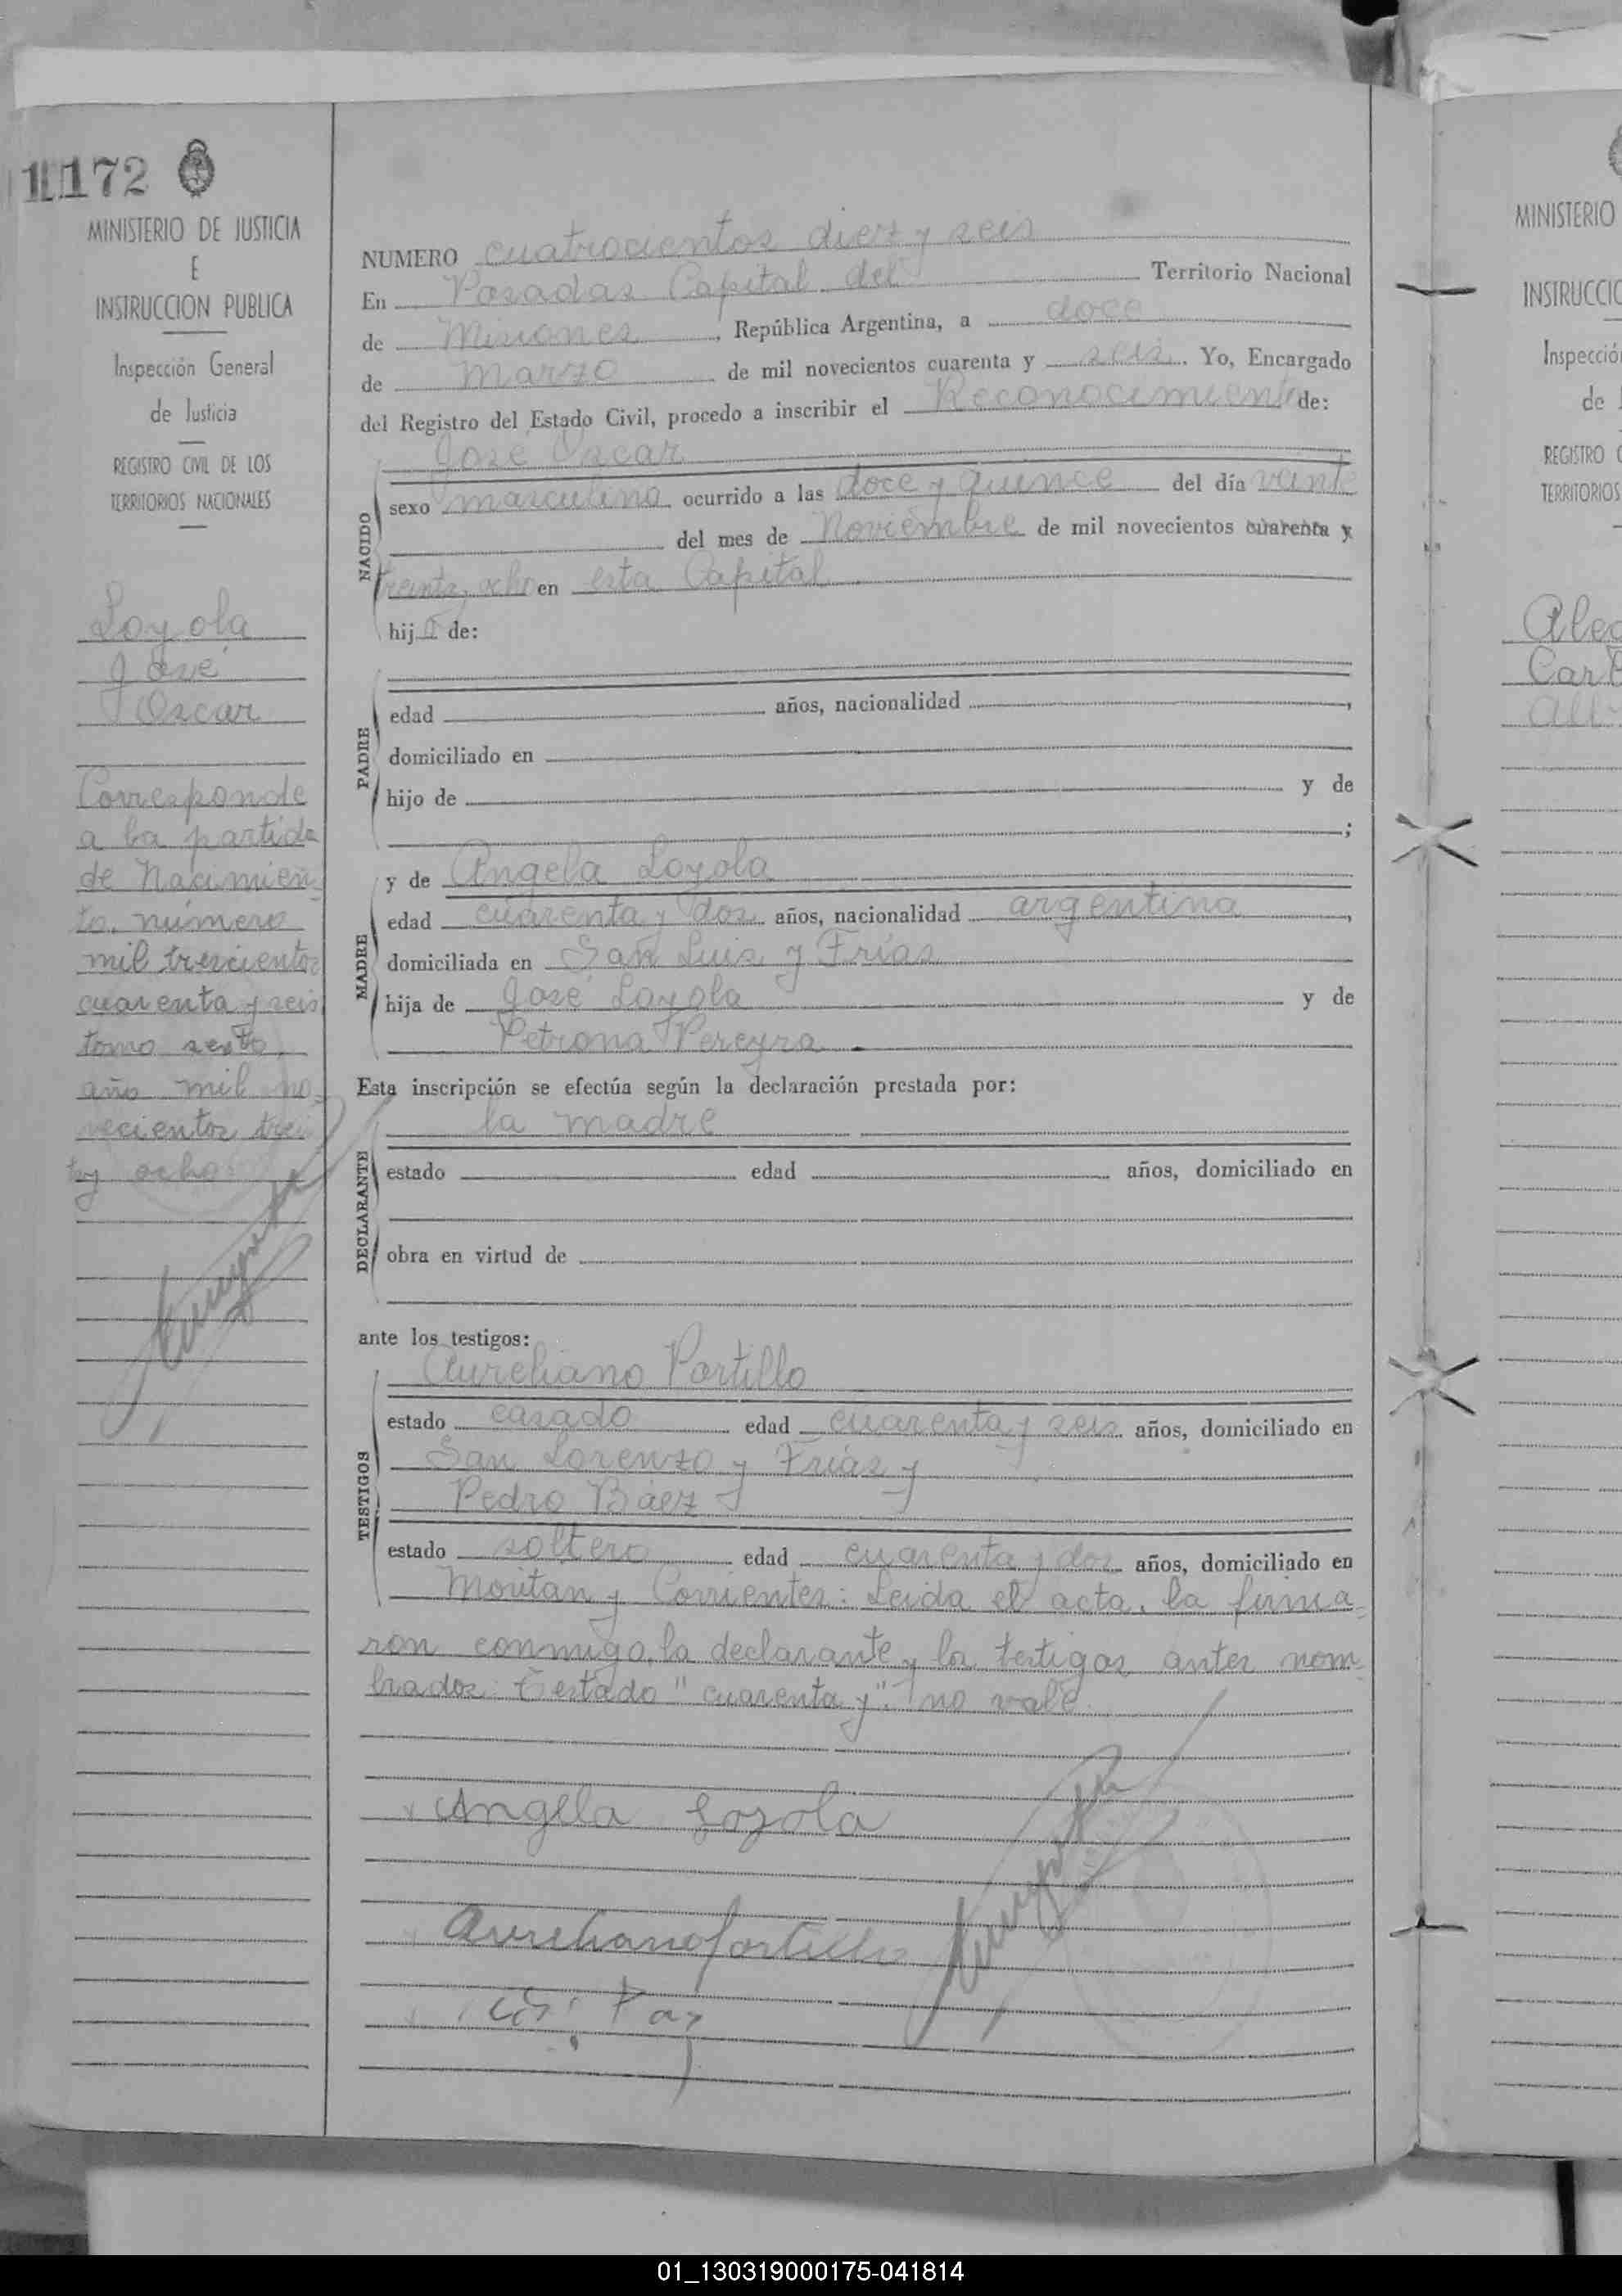 1172
MINISTERIO DE JUSTICIA
E
INSTRUCCION PUBLICA
Inspección General
de Justicia
REGISTRO CIVIL DE LOS
TERRITORIOS NACIONALES
Loyola
José
Oscar
Corresponde
a la partida
de Nacimien-
to, número
mil trescientos
cuarenta y seis
tomo sexto
año mil no-
vecientos trein
ta y ocho
NUMERO cuatrocientos diez y seis
En Posadas Capital del Territorio Nacional
de Misiones, República Argentina, a doce
de Marzo de mil novecientos cuarenta y seis. Yo, Encargado
del Registro del Estado Civil, procedo a inscribir el Reconocimiento de:
José Oscar
NACIDO
sexo masculino ocurrido a las doce y quince del día veinte
del mes de Noviembre de mil novecientos cuarenta y
treinta y ocho en esta Capital
hijo de:
PADRE
edad años, nacionalidad ,
domiciliado en
hijo de y de
;
MADRE
y de Angela Loyola
edad cuarenta y dos años, nacionalidad argentina,
domiciliada en San Luis y Frías
hija de José Loyola y de
Petrona Pereyra
Esta inscripción se efectúa según la declaración prestada por:
DECLARANTE
la madre
estado edad años, domiciliado en
obra en virtud de
ante los testigos:
TESTIGOS
Aureliano Portillo
estado casado edad cuarenta y seis años, domiciliado en
San Lorenzo y Frías y
Pedro Báez
estado soltero edad cuarenta y dos años, domiciliado en
y Corrientes: Leida el acta, la firma-
ron conmigo, la declarante y los testigos antes nom-
brados: Testado "cuarenta y": no vale.
Angela Loyola
Aureliano Portillo
MINISTERIO
INSTRUCCIO
Inspecció
de
REGISTRO
TERRITORIOS
01_130319000175-041814